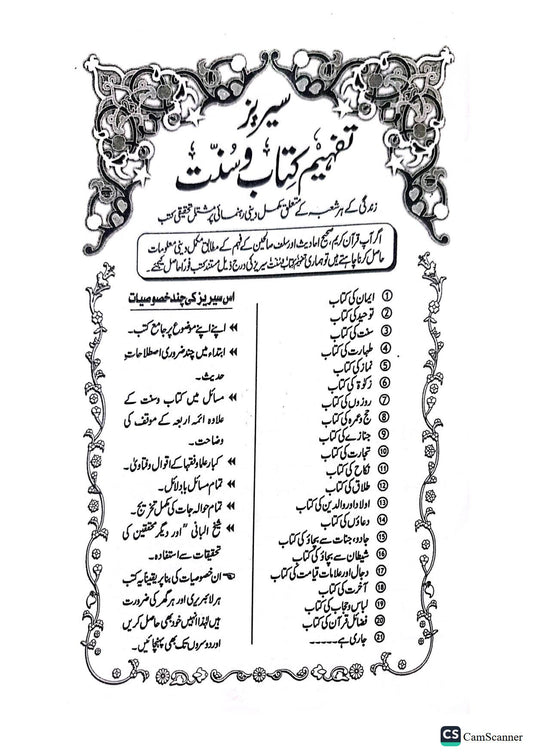 سیریز
تفہیم کتاب و سنت
زندگی کے ہر شعبہ کے متعلق مکمل دینی رہنمائی پر مشتمل تحقیقی کتب
اگر آپ قرآن کریم، صحیح احادیث اور سلف صالحین کے فہم کے مطابق مکمل دینی معلومات
حاصل کرنا چاہتے ہیں تو ہماری تفہیم کتاب و سنت سیریز کی درج ذیل مستند کتب فوراً حاصل کیجئے۔
① ایمان کی کتاب
② توحید کی کتاب
③ سنت کی کتاب
④ طہارت کی کتاب
⑤ نماز کی کتاب
⑥ زکوٰۃ کی کتاب
⑦ روزوں کی کتاب
⑧ حج و عمرہ کی کتاب
⑨ جنازے کی کتاب
⑩ تجارت کی کتاب
⑪ نکاح کی کتاب
⑫ طلاق کی کتاب
⑬ اولاد اور والدین کی کتاب
⑭ دعاؤں کی کتاب
⑮ جادو، جنات سے بچاؤ کی کتاب
⑯ شیطان سے بچاؤ کی کتاب
⑰ دجال اور علامات قیامت کی کتاب
⑱ آخرت کی کتاب
⑲ لباس و حجاب کی کتاب
⑳ فضائل قرآن کی کتاب
㉑ جاری ہے۔۔۔۔۔
اس سیریز کی چند خصوصیات
اپنے اپنے موضوع پر جامع کتب۔
ابتداء میں چند ضروری اصطلاحاتِ
حدیث۔
مسائل میں کتاب و سنت کے
علاوہ ائمہ اربعہ کے موقف کی
وضاحت۔
کبار علما و فقہا کے اقوال و فتاویٰ۔
تمام مسائل با دلائل۔
تمام حوالہ جات کی مکمل تخریج۔
شیخ البانیؒ اور دیگر محققین کی
تحقیقات سے استفادہ۔
ان خصوصیات کی بنا پر یقیناً یہ کتب
ہر لائبریری اور ہر گھر کی ضرورت
ہیں لہٰذا انہیں خود بھی حاصل کریں
اور دوسروں تک بھی پہنچائیں۔
CS CamScanner